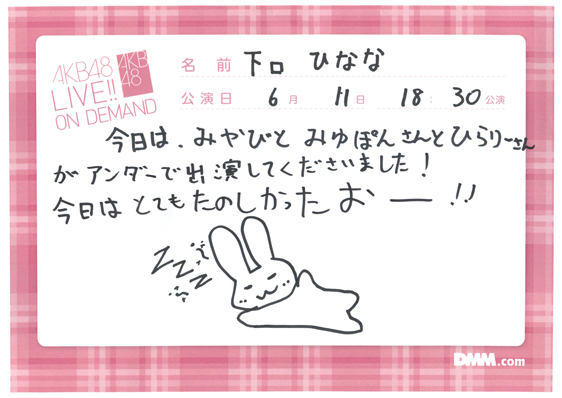 AKB48
LIVE!!
ON DEMAND
AKB
48
名前 下口 ひなな
公演日 6月 11日 18:30公演
今日は、みやびと みゆぽんさんとひらりーさん
がアンダーで出演してくださいました!
今日は とても たのしかった おー!!
ZZZ
DMM.com